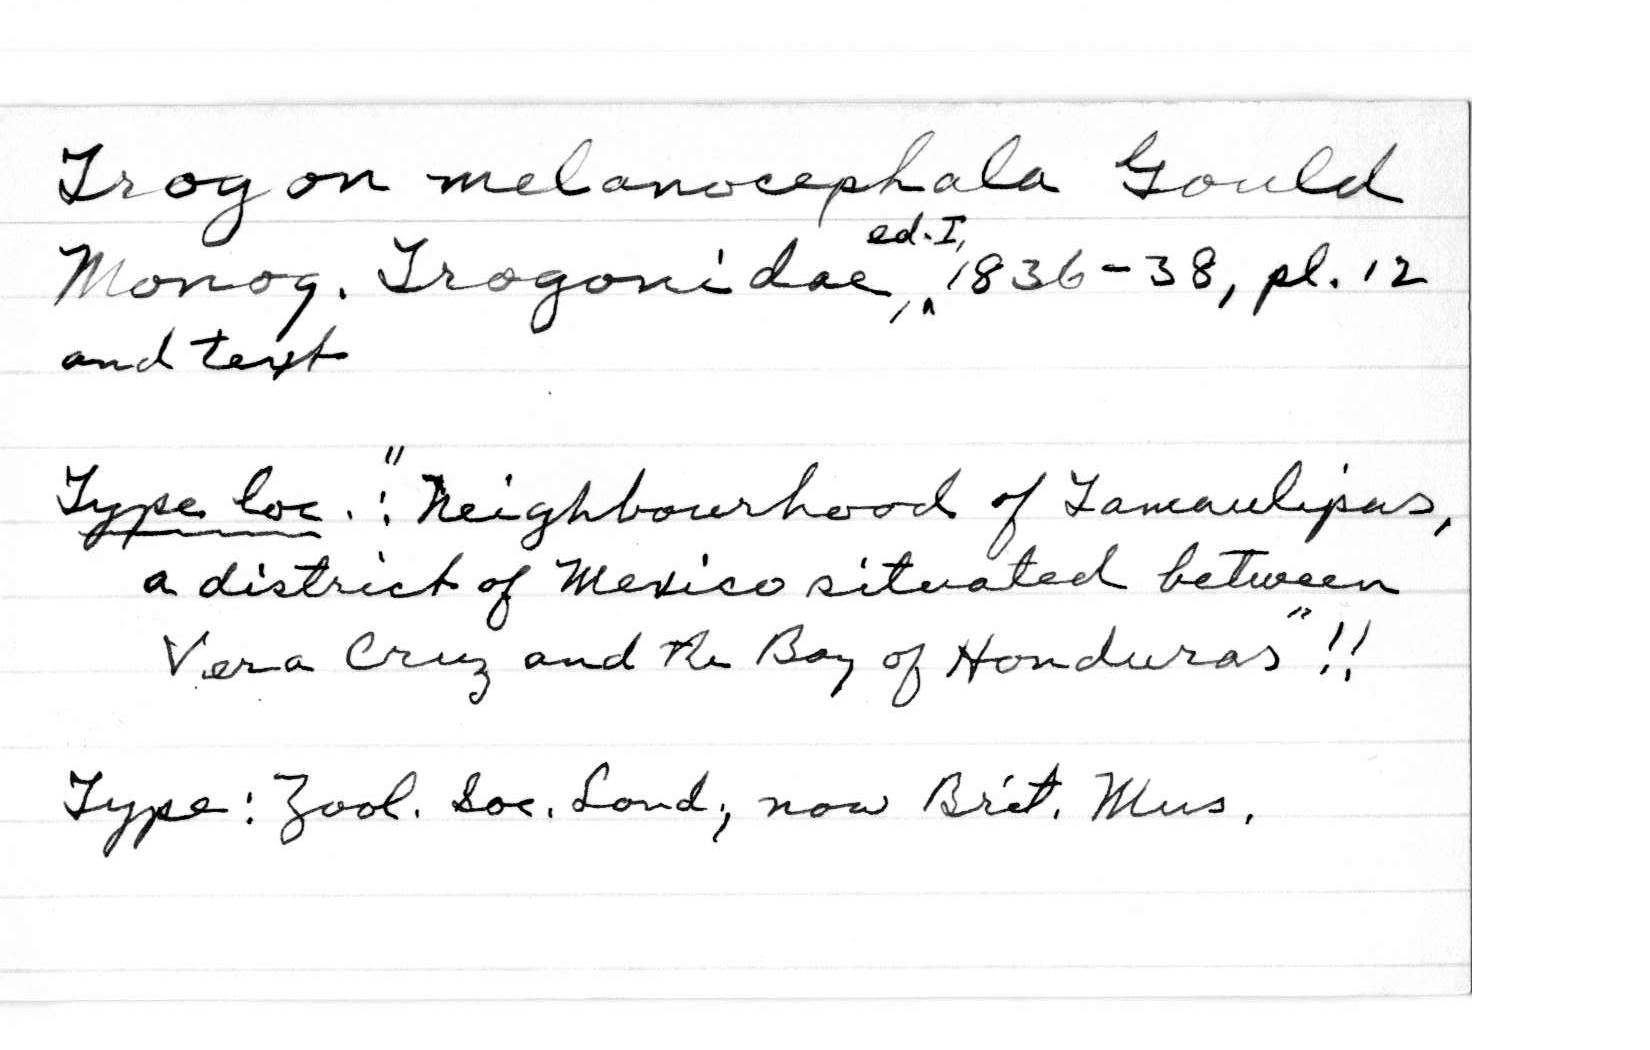 Trogon melanocephala Gould
Monog. Trogonidae, ed. I, 1836-38, pl. 12
and text
Type loc.: "Neighbourhood of Tamaulipas,
a district of Mexico situated between
Vera Cruz and the Bay of Honduras"!!
Type: Zool. Soc. Lond; now Brit. Mus.